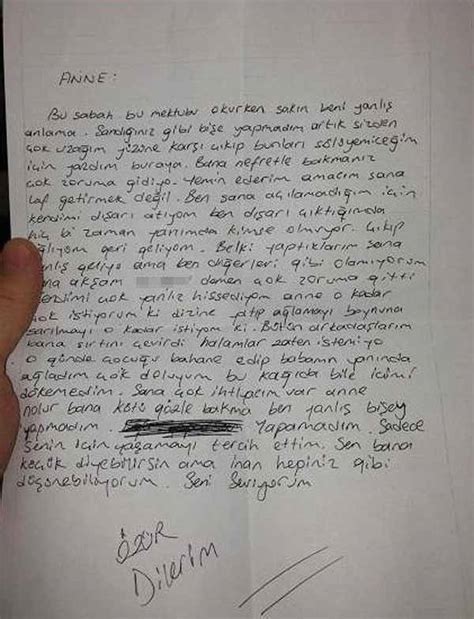 ANNE:
Bu sabah bu mektubu okurken sakın beni yanlış
anlama. Sandığınız gibi bişe yapmadım artık sizden
çok uzağım yüzüne karşı çıkıp bunları söleyemiceğim
için yazdım buraya. Bana nefretle bakmanız
çok zoruma gidiyo. Yemin ederim amacım sana
laf getirmek değil. Ben sana açılamadığım için
kendimi dışarı atıyom ben dışarı çıktığımda
hiç bi zaman yanımda kimse olmuyor. Çıkıp
ağlıyom geri geliyom. Belki yaptıklarım sana
yanlış geliyo ama ben diğerleri gibi olamıyorum
bana akşam demen çok zoruma gitti
kendimi çok yanlız hissediyom anne o kadar
çok istiyorum ki dizine yatıp ağlamayı boynuna
sarılmayı o kadar istiyom ki. Bütün arkadaşlarım
bana sırtını çevirdi halamlar zaten istemiyo
o günde çocuğu bahane edip babamın yanında
ağladım çok doluyum bu kağıda bile içimi
dökemedim. Sana çok ihtiyacım var anne
nolur bana kötü gözle bakma ben yanlış bişey
yapmadım. Yapamadım. Sadece
Senin için yaşamayı tercih ettim. Sen bana
küçük diyebilirsin ama inan hepiniz gibi
düşünebiliyorum. Seni Seviyorum
ÖZÜR
Dilerim